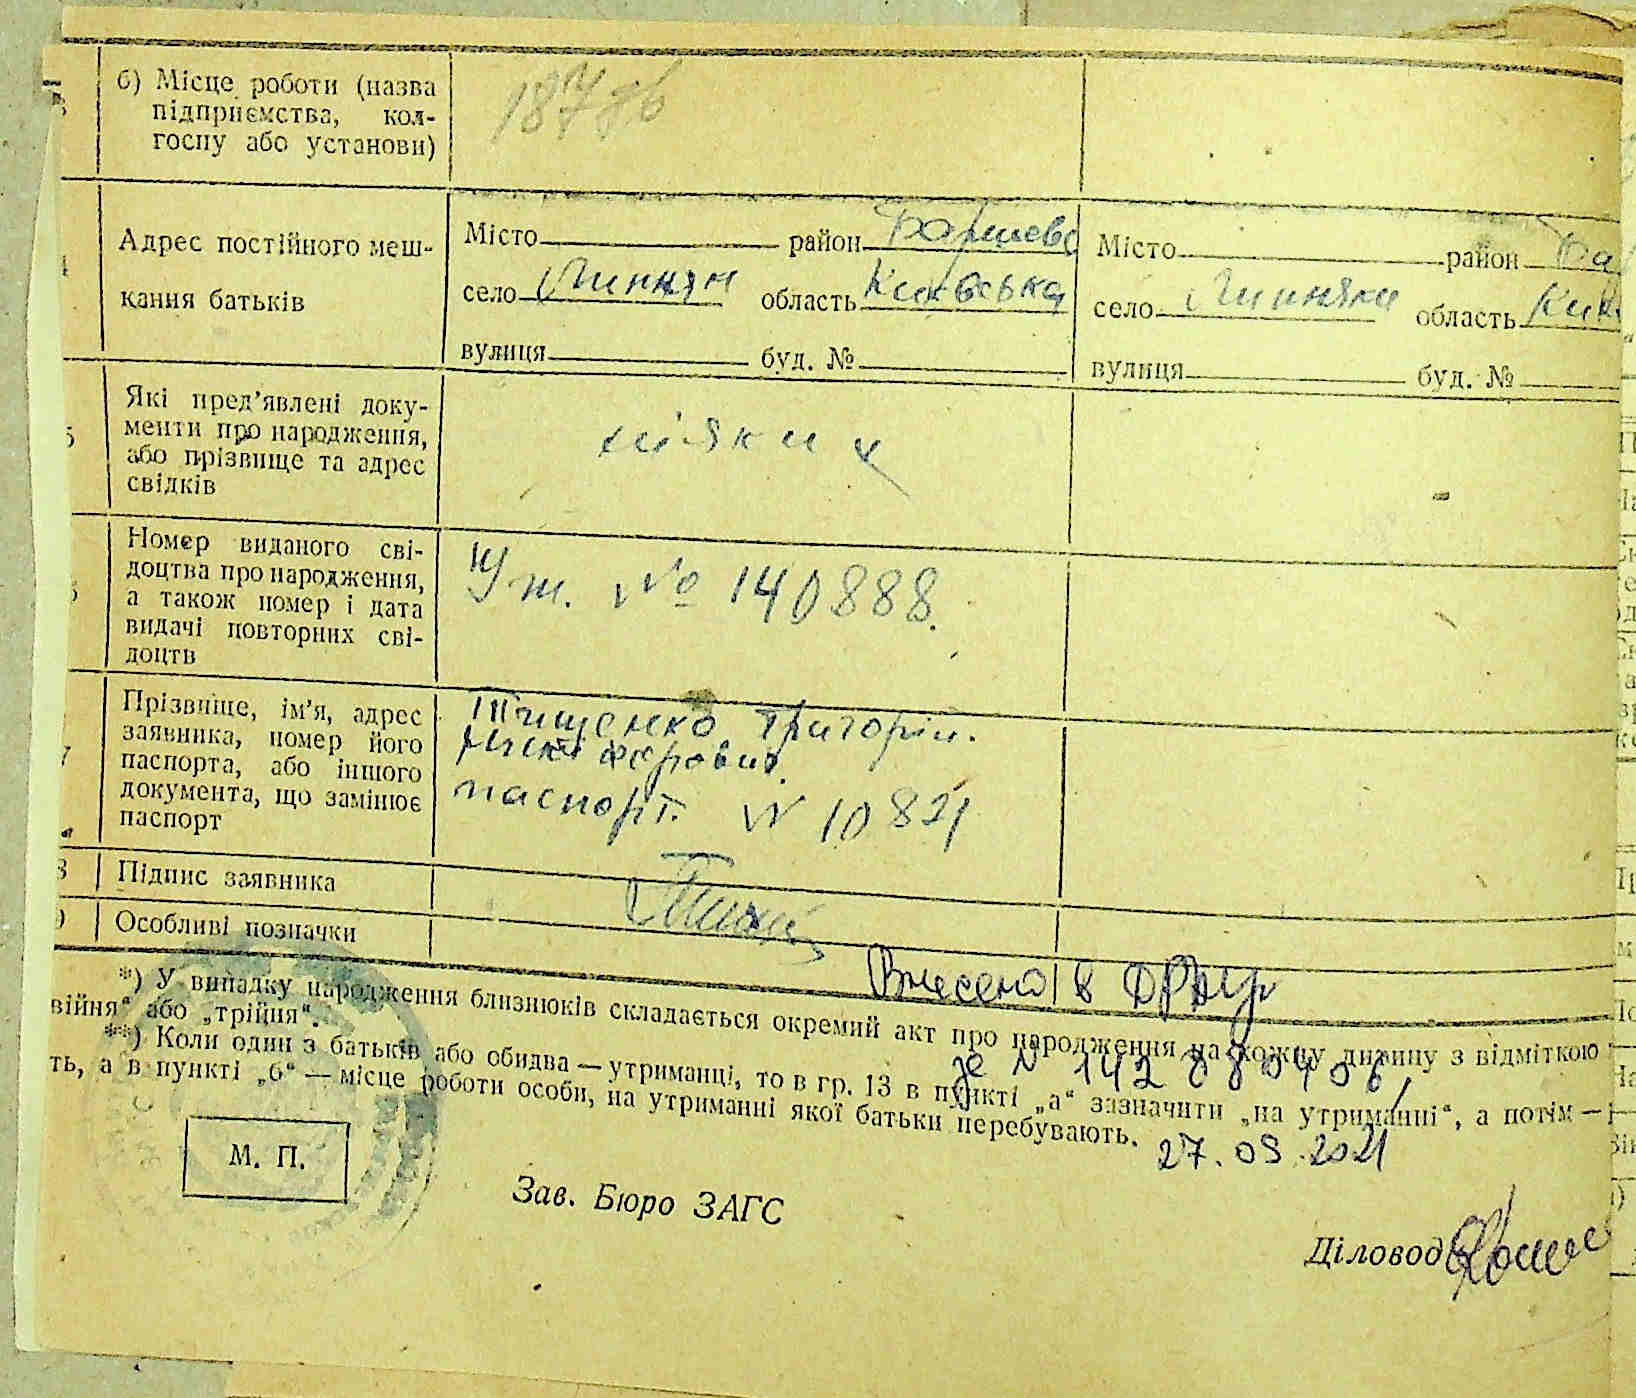 б) Місце роботи (назва
підприємства, кол-
госпу або установи)
Адрес постійного меш-
кання батьків
Місто район Баришевс
село Липнян область Київська
вулиця буд. №
Місто район Ба
село Липняки область Київ
вулиця буд. №
5
Які пред’явлені доку-
менти про народження,
або прізвище та адрес
свідків
ніяких
Номер виданого сві-
доцтва про народження,
а також номер і дата
видачі повторних сві-
доцтв
№ 140888.
7
Прізвище, ім’я, адрес
заявника, номер його
паспорта, або іншого
документа, що замінює
паспорт
Тищенко Григорій
паспорт. N 10821
8
Підпис заявника
9
Особливі позначки
Внесено в ДРАЦ
*) У випадку народження близнюків складається окремий акт про народження на кожну дитину з відміткою
війня“ або „трійня“.
**) Коли один з батьків або обидва — утриманці, то в гр. 13 в пункті „а“ зазначити „на утриманні“, а потім —
ть, а в пункті „б“ — місце роботи особи, на утриманні якої батьки перебувають.
27.09.2021
М. П.
Зав. Бюро ЗАГС
Діловод